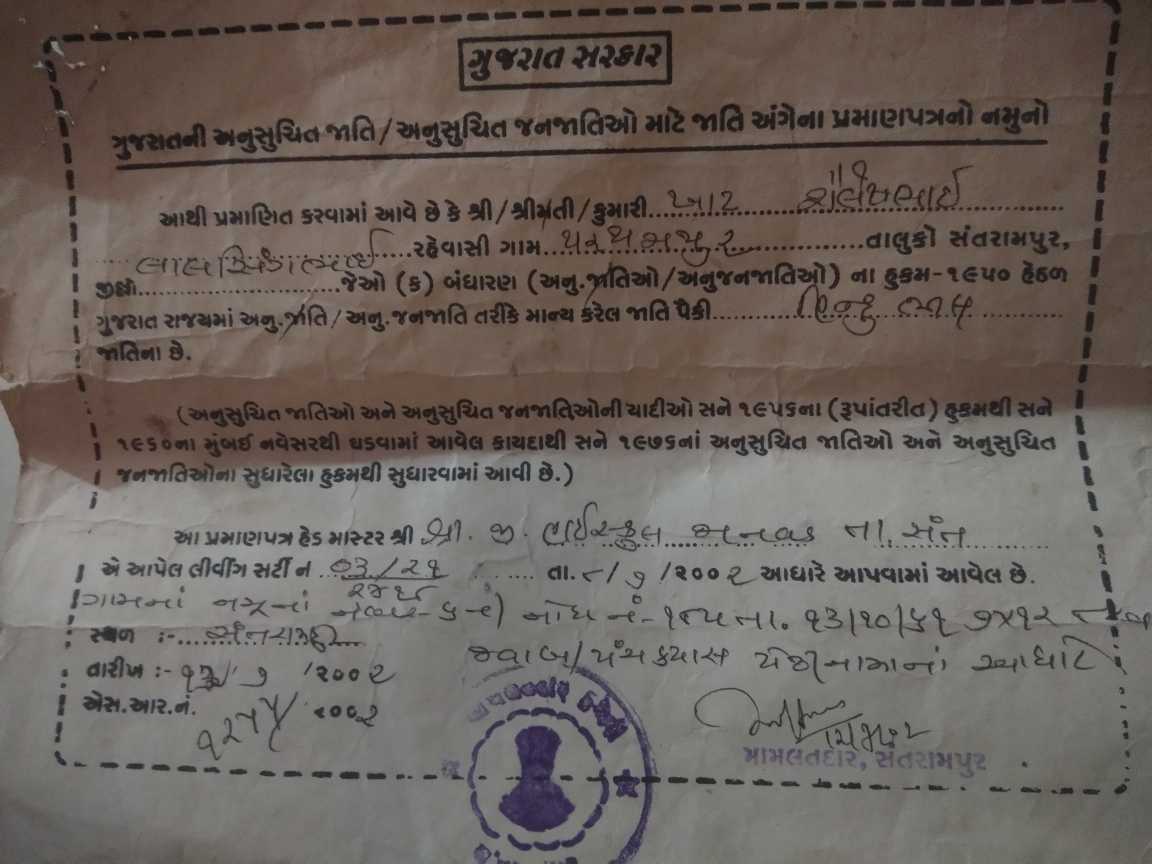 ગુજરાત સરકાર
ગુજરાતની અનુસુચિત જાતિ/અનુસુચિત જનજાતિઓ માટે જાતિ અંગેના પ્રમાણપત્રનો નમુનો
આથી પ્રમાણિત કરવામાં આવે છે કે શ્રી/શ્રીમતી/કુમારી ખાટ શૈલેષભાઈ
રહેવાસી ગામ તાલુકો સંતરામપુર,
જીલ્લો જેઓ (ક) બંધારણ (અનુ.જાતિઓ/અનુજનજાતિઓ) ના હુકમ-૧૯૫૦ હેઠળ
ગુજરાત રાજયમાં અનુ.જાતિ/અનુ.જનજાતિ તરીકે માન્ય કરેલ જાતિ પૈકી હિન્દુ
જાતિના છે.
(અનુસુચિત જાતિઓ અને અનુસુચિત જનજાતિઓની યાદીઓ સને ૧૯૫૬ના (રૂપાંતરીત) હુકમથી સને
૧૯૬૦ના મુંબઈ નવેસરથી ઘડવામાં આવેલ કાયદાથી સને ૧૯૭૬નાં અનુસુચિત જાતિઓ અને અનુસુચિત
જનજાતિઓના સુધારેલા હુકમથી સુધારવામાં આવી છે.)
આ પ્રમાણપત્ર હેડ માસ્ટર શ્રી શ્રી. જી. હાઈસ્કુલ તા. સંત
એ આપેલ લીવીંગ સર્ટી નં ૦૩/૨૧ તા. /૭/૨૦૦૨ આધારે આપવામાં આવેલ છે.
ગામનાં નોંધ નં- તા. ૧૩/૧૦/૬૧ ૭x૧૨
સ્થળ :- સંતરામપુર
જવાબ/પંચ કયાસ પંજીનામાનાં આધારે
તારીખ :- ૧૩/૭/૨૦૦૨
એસ.આર.નં. ૨૦૦૨
મામલતદાર, સંતરામપુર